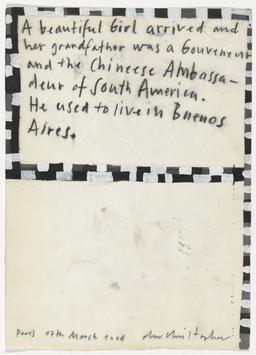 A beautiful Girl arrived and
her grandfather was a Gouverneur
and the Chineese Ambassa-
deur of South America.
He used to live in Buenos
Aires.
Paris 17th March